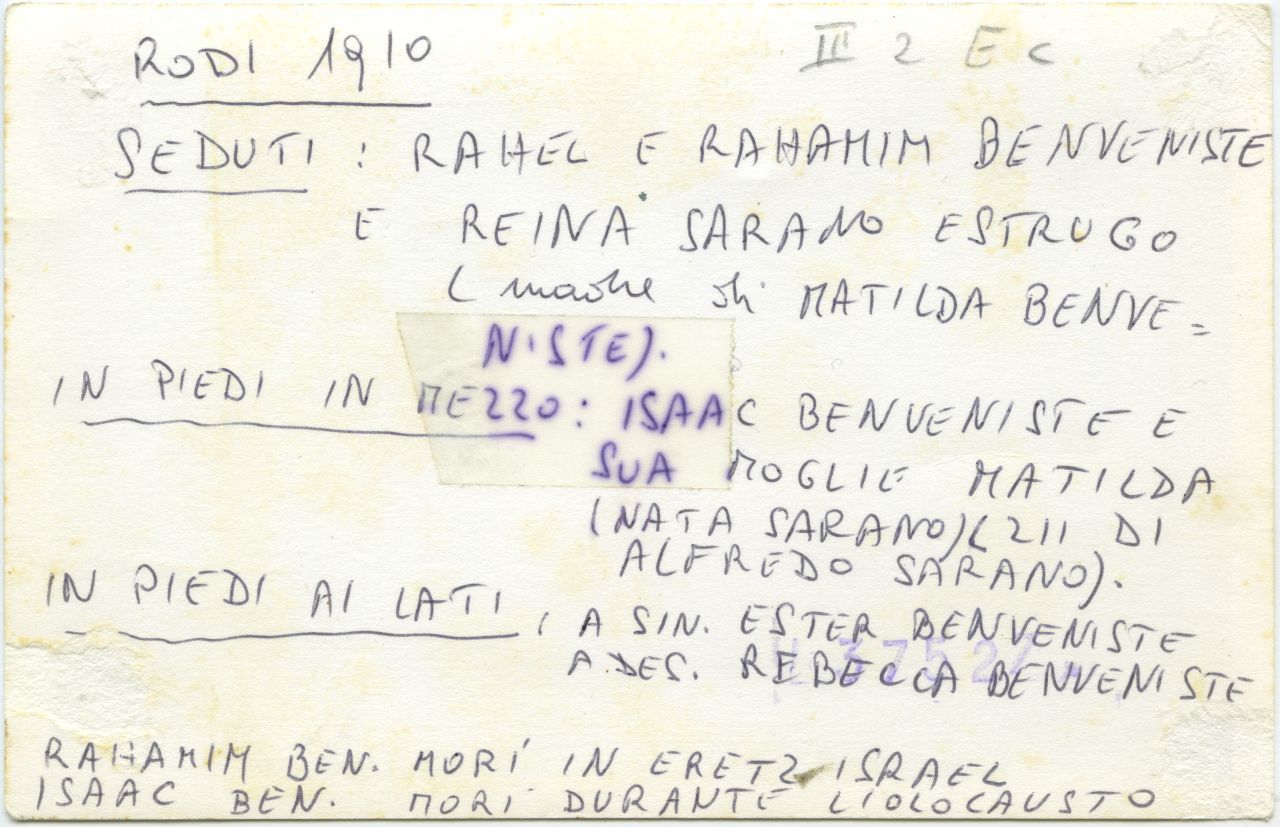 RODI 1910
III 2 E c
SEDUTI : RAHEL E RAHAMIM BENVENISTE
E REINA SARANO ESTRUGO
( madre di MATILDA BENVE=
NISTE).
IN PIEDI IN MEZZO: ISAAC BENVENISTE E
SUA MOGLIE MATILDA
(NATA SARANO)(ZII DI
ALFREDO SARANO).
IN PIEDI AI LATI, A SIN. ESTER BENVENISTE
A DES. REBECCA BENVENISTE
RAHAMIM BEN. MORÍ IN ERETZ ISRAEL
ISAAC BEN. MORÍ DURANTE L'OLOCAUSTO